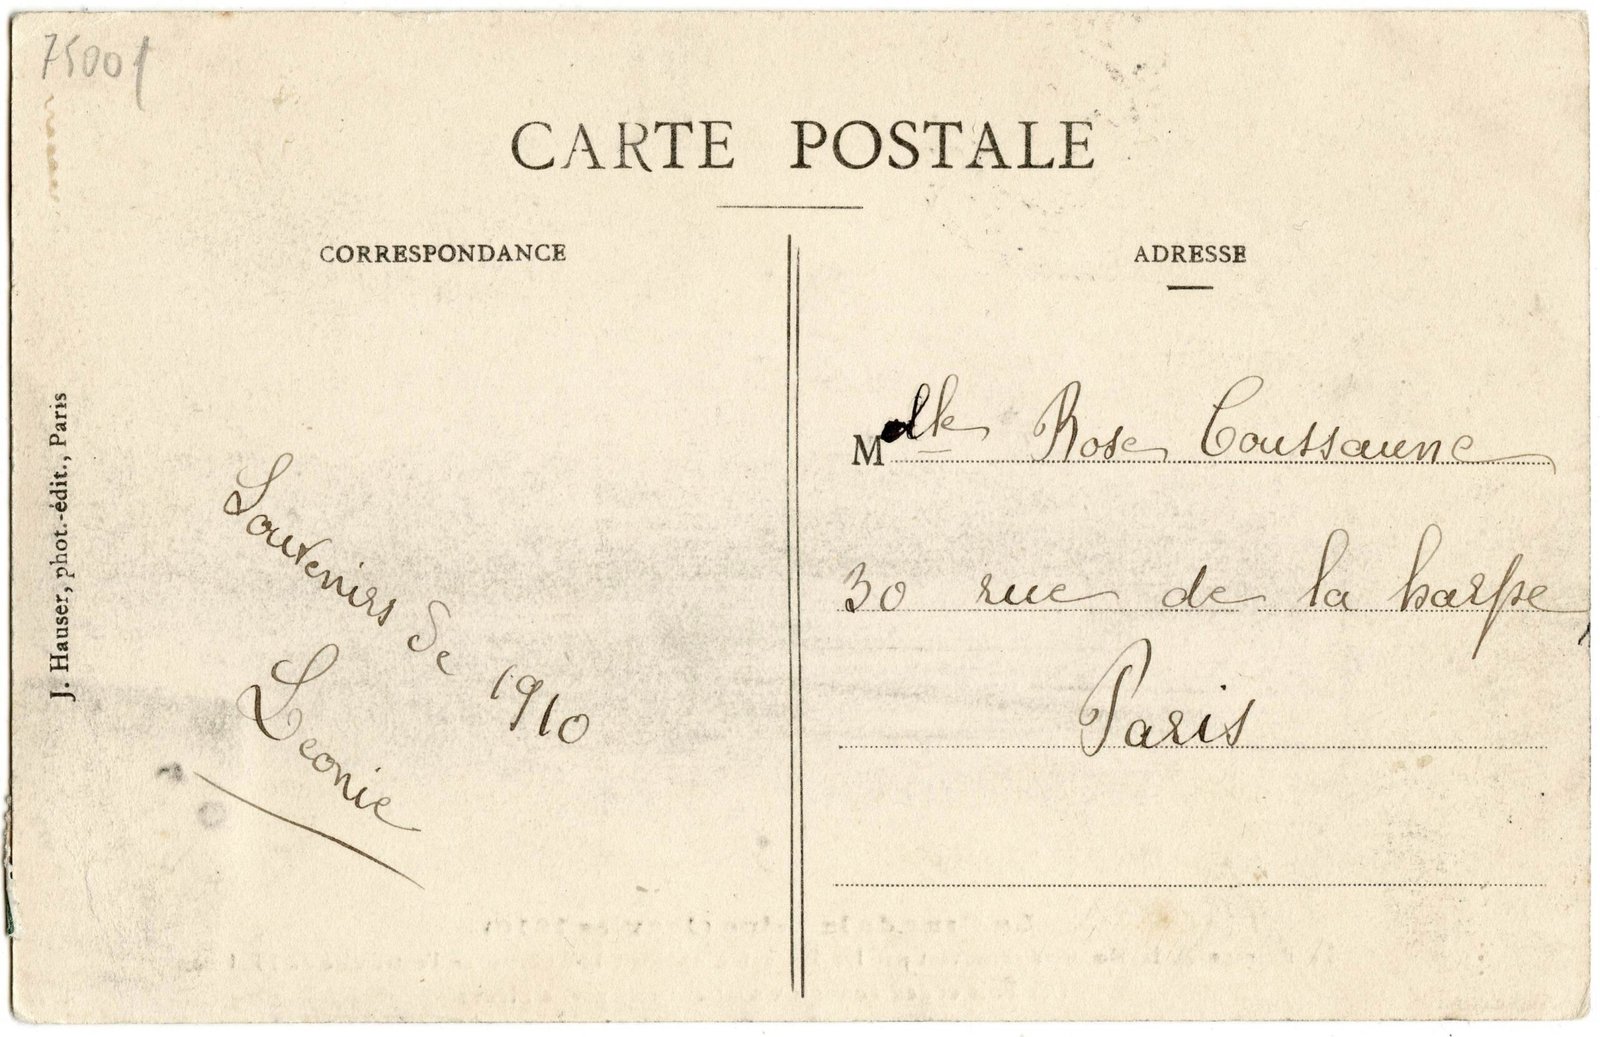 75001
CARTE POSTALE
CORRESPONDANCE
ADRESSE
J. Hauser, phot.-édit., Paris
Souvenirs de 1910
Leonie
Melle Rose
30 rue de la harpe,
Paris